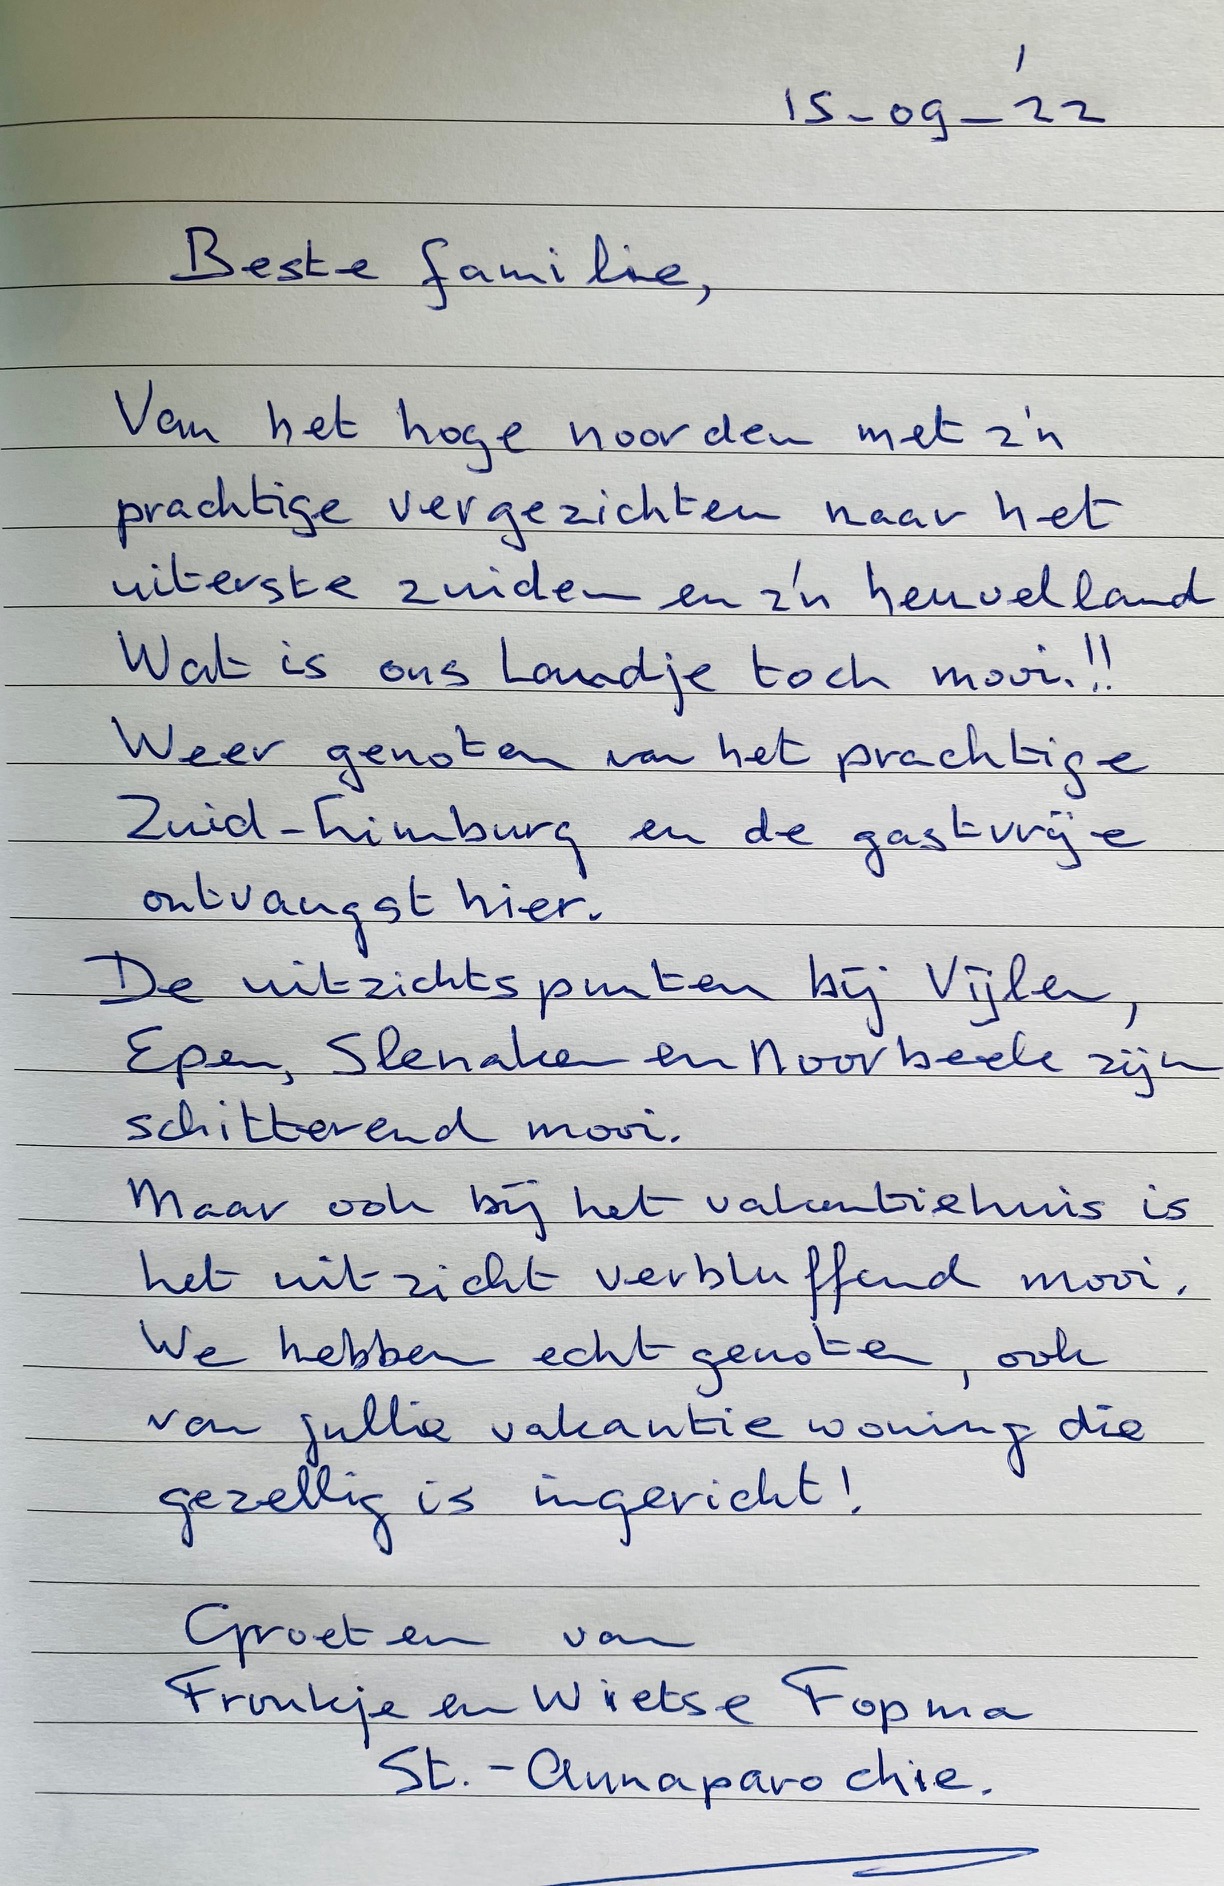 15-09-'22
Beste familie,
Van het hoge noorden met z'n
prachtige vergezichten naar het
uiterste zuiden en z'n heuvelland
Wat is ons Landje toch mooi.!!
Weer genoten van het prachtige
Zuid-Limburg en de gastvrije
ontvangst hier.
De uitzichtspunten bij Vijlen,
Epen, Slenaken en Noorbeek zijn
schitterend mooi.
Maar ook bij het vakantiehuis is
het uitzicht verbluffend mooi.
We hebben echt genoten, ook
van jullie vakantiewoning die
gezellig is ingericht!
Groeten van
Froukje en Wietse Fopma
St.-Annaparochie.